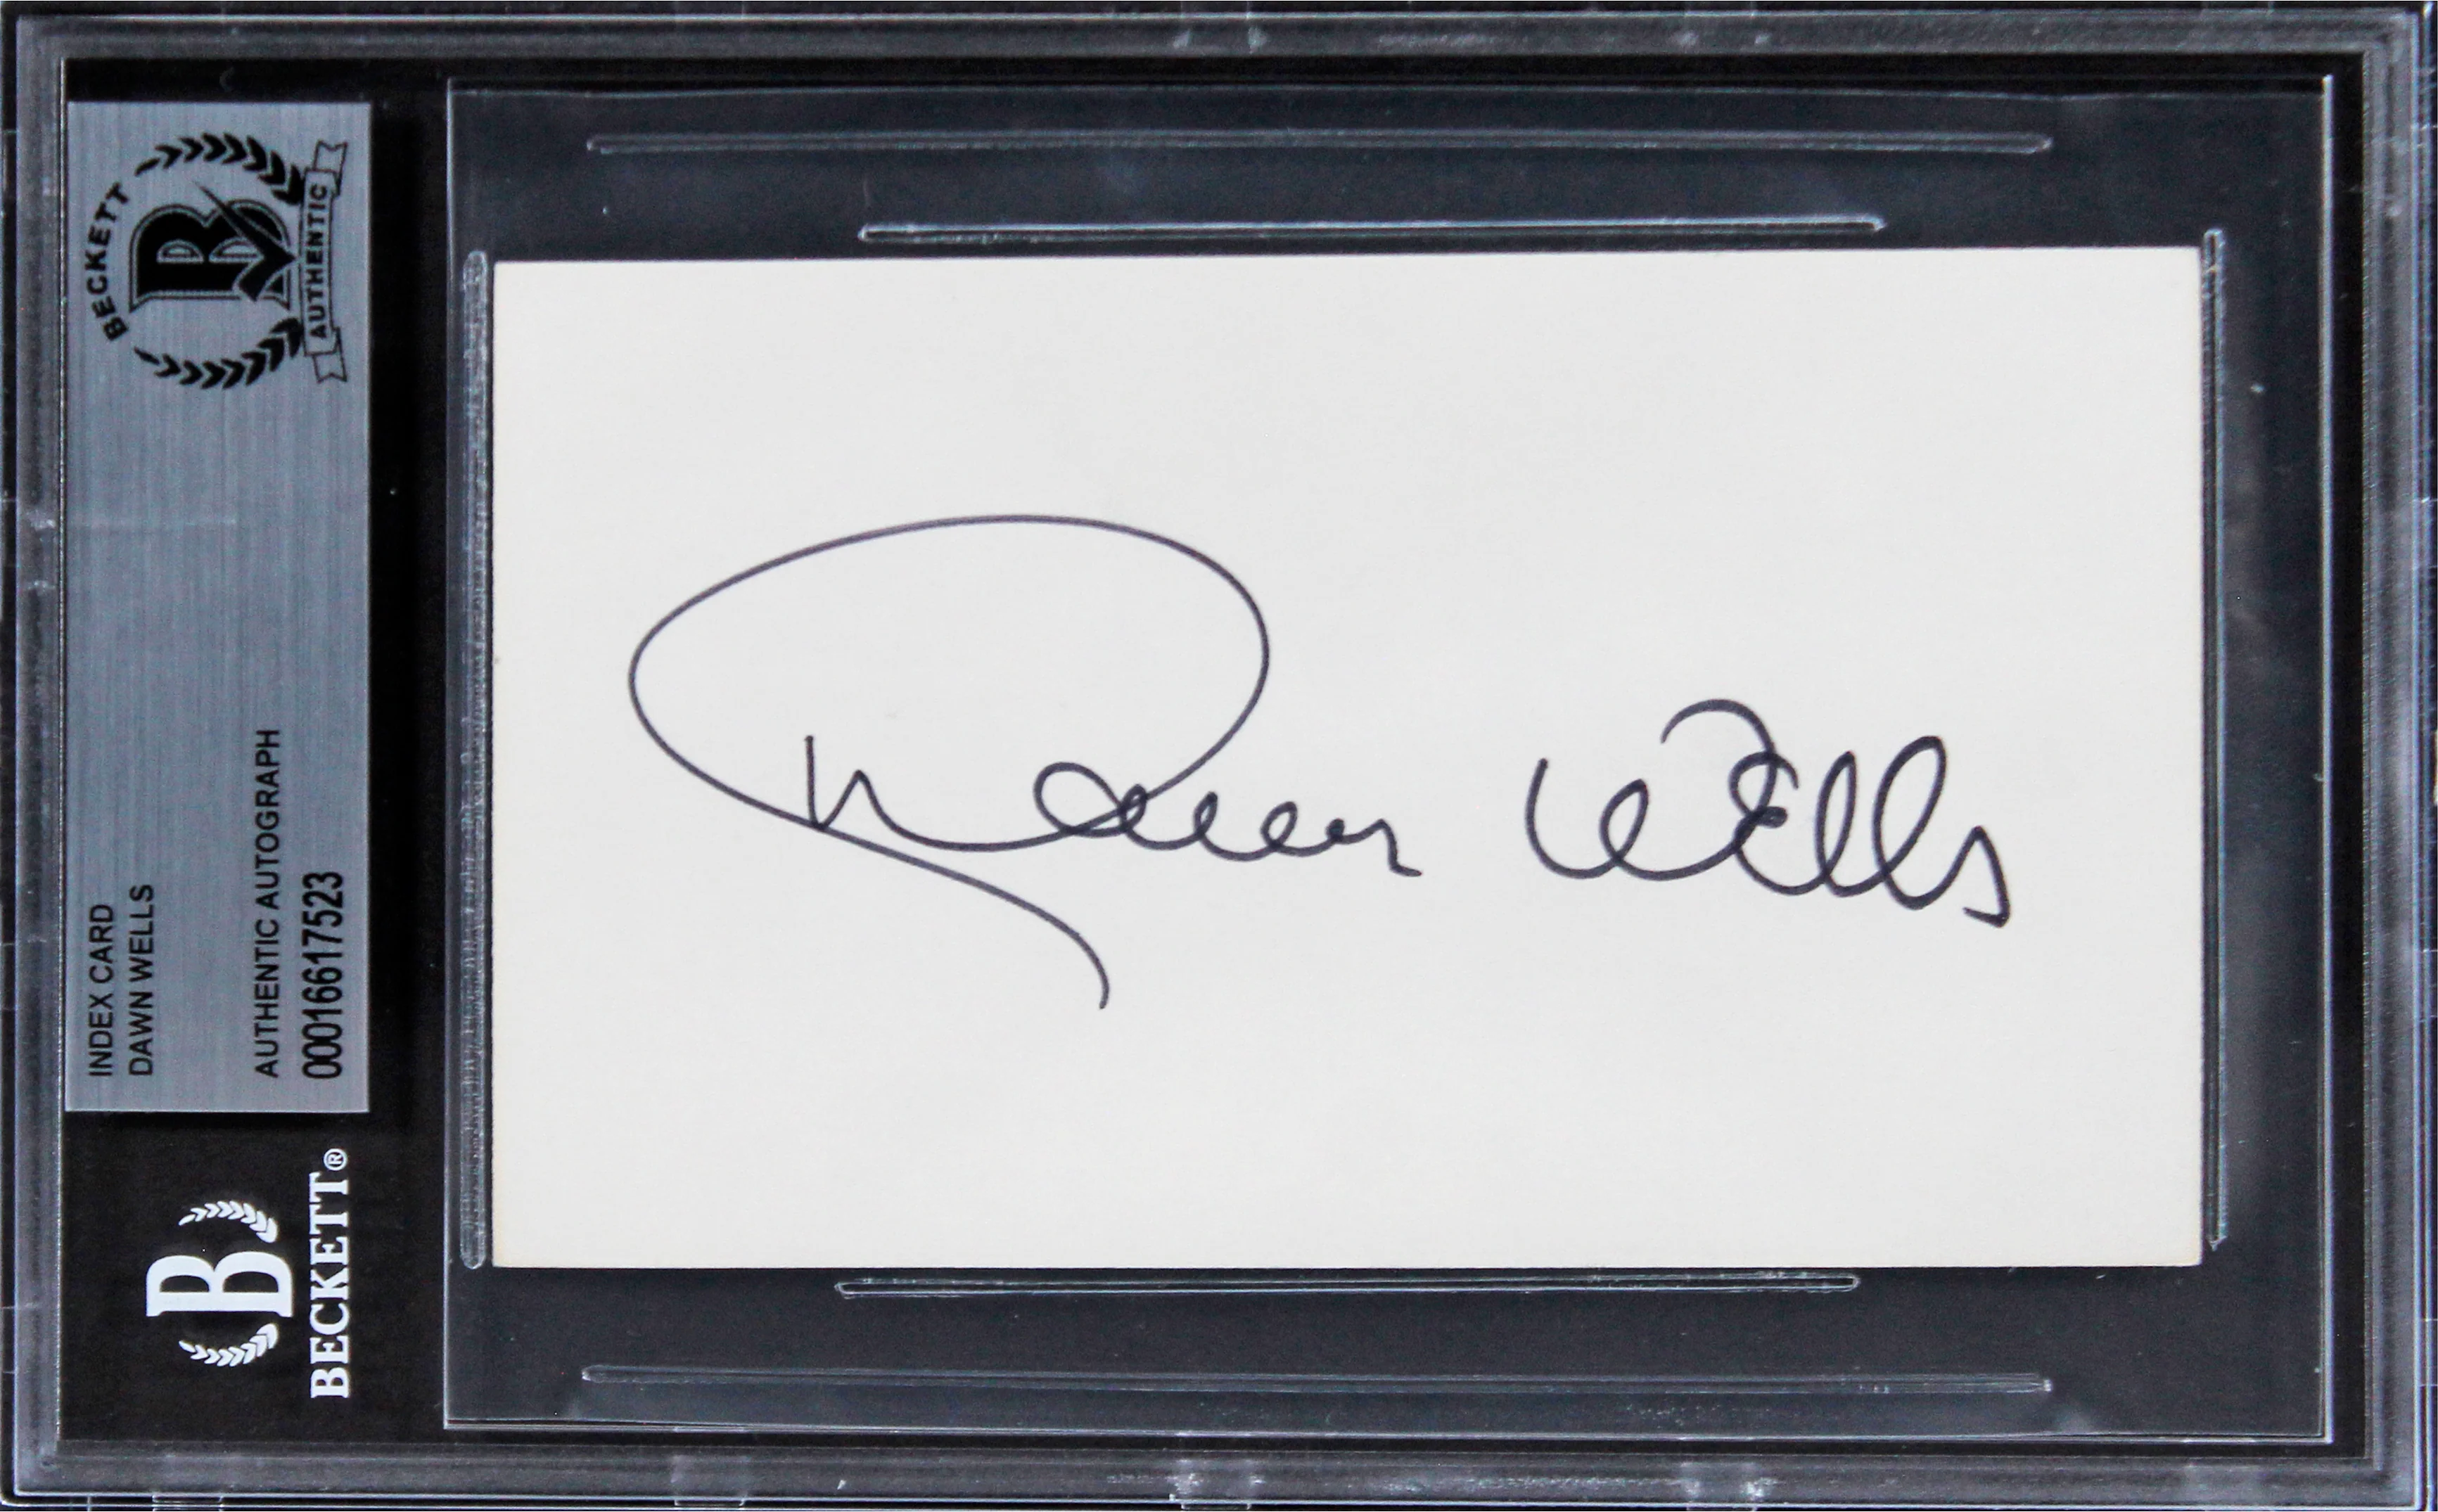 BECKETT
B
AUTHENTIC
INDEX CARD
DAWN WELLS
AUTHENTIC AUTOGRAPH
00016617523
B
BECKETT®
Dawn Wells